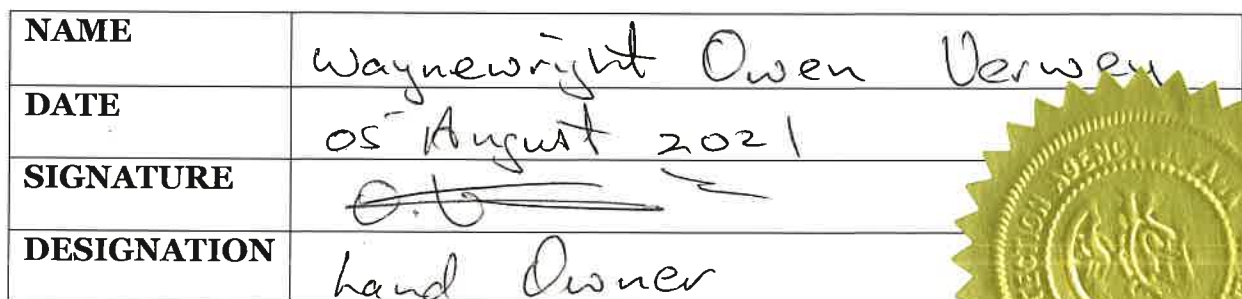 NAME Waynewright Owen Verwey
DATE 05 August 2021
SIGNATURE
DESIGNATION Land Owner